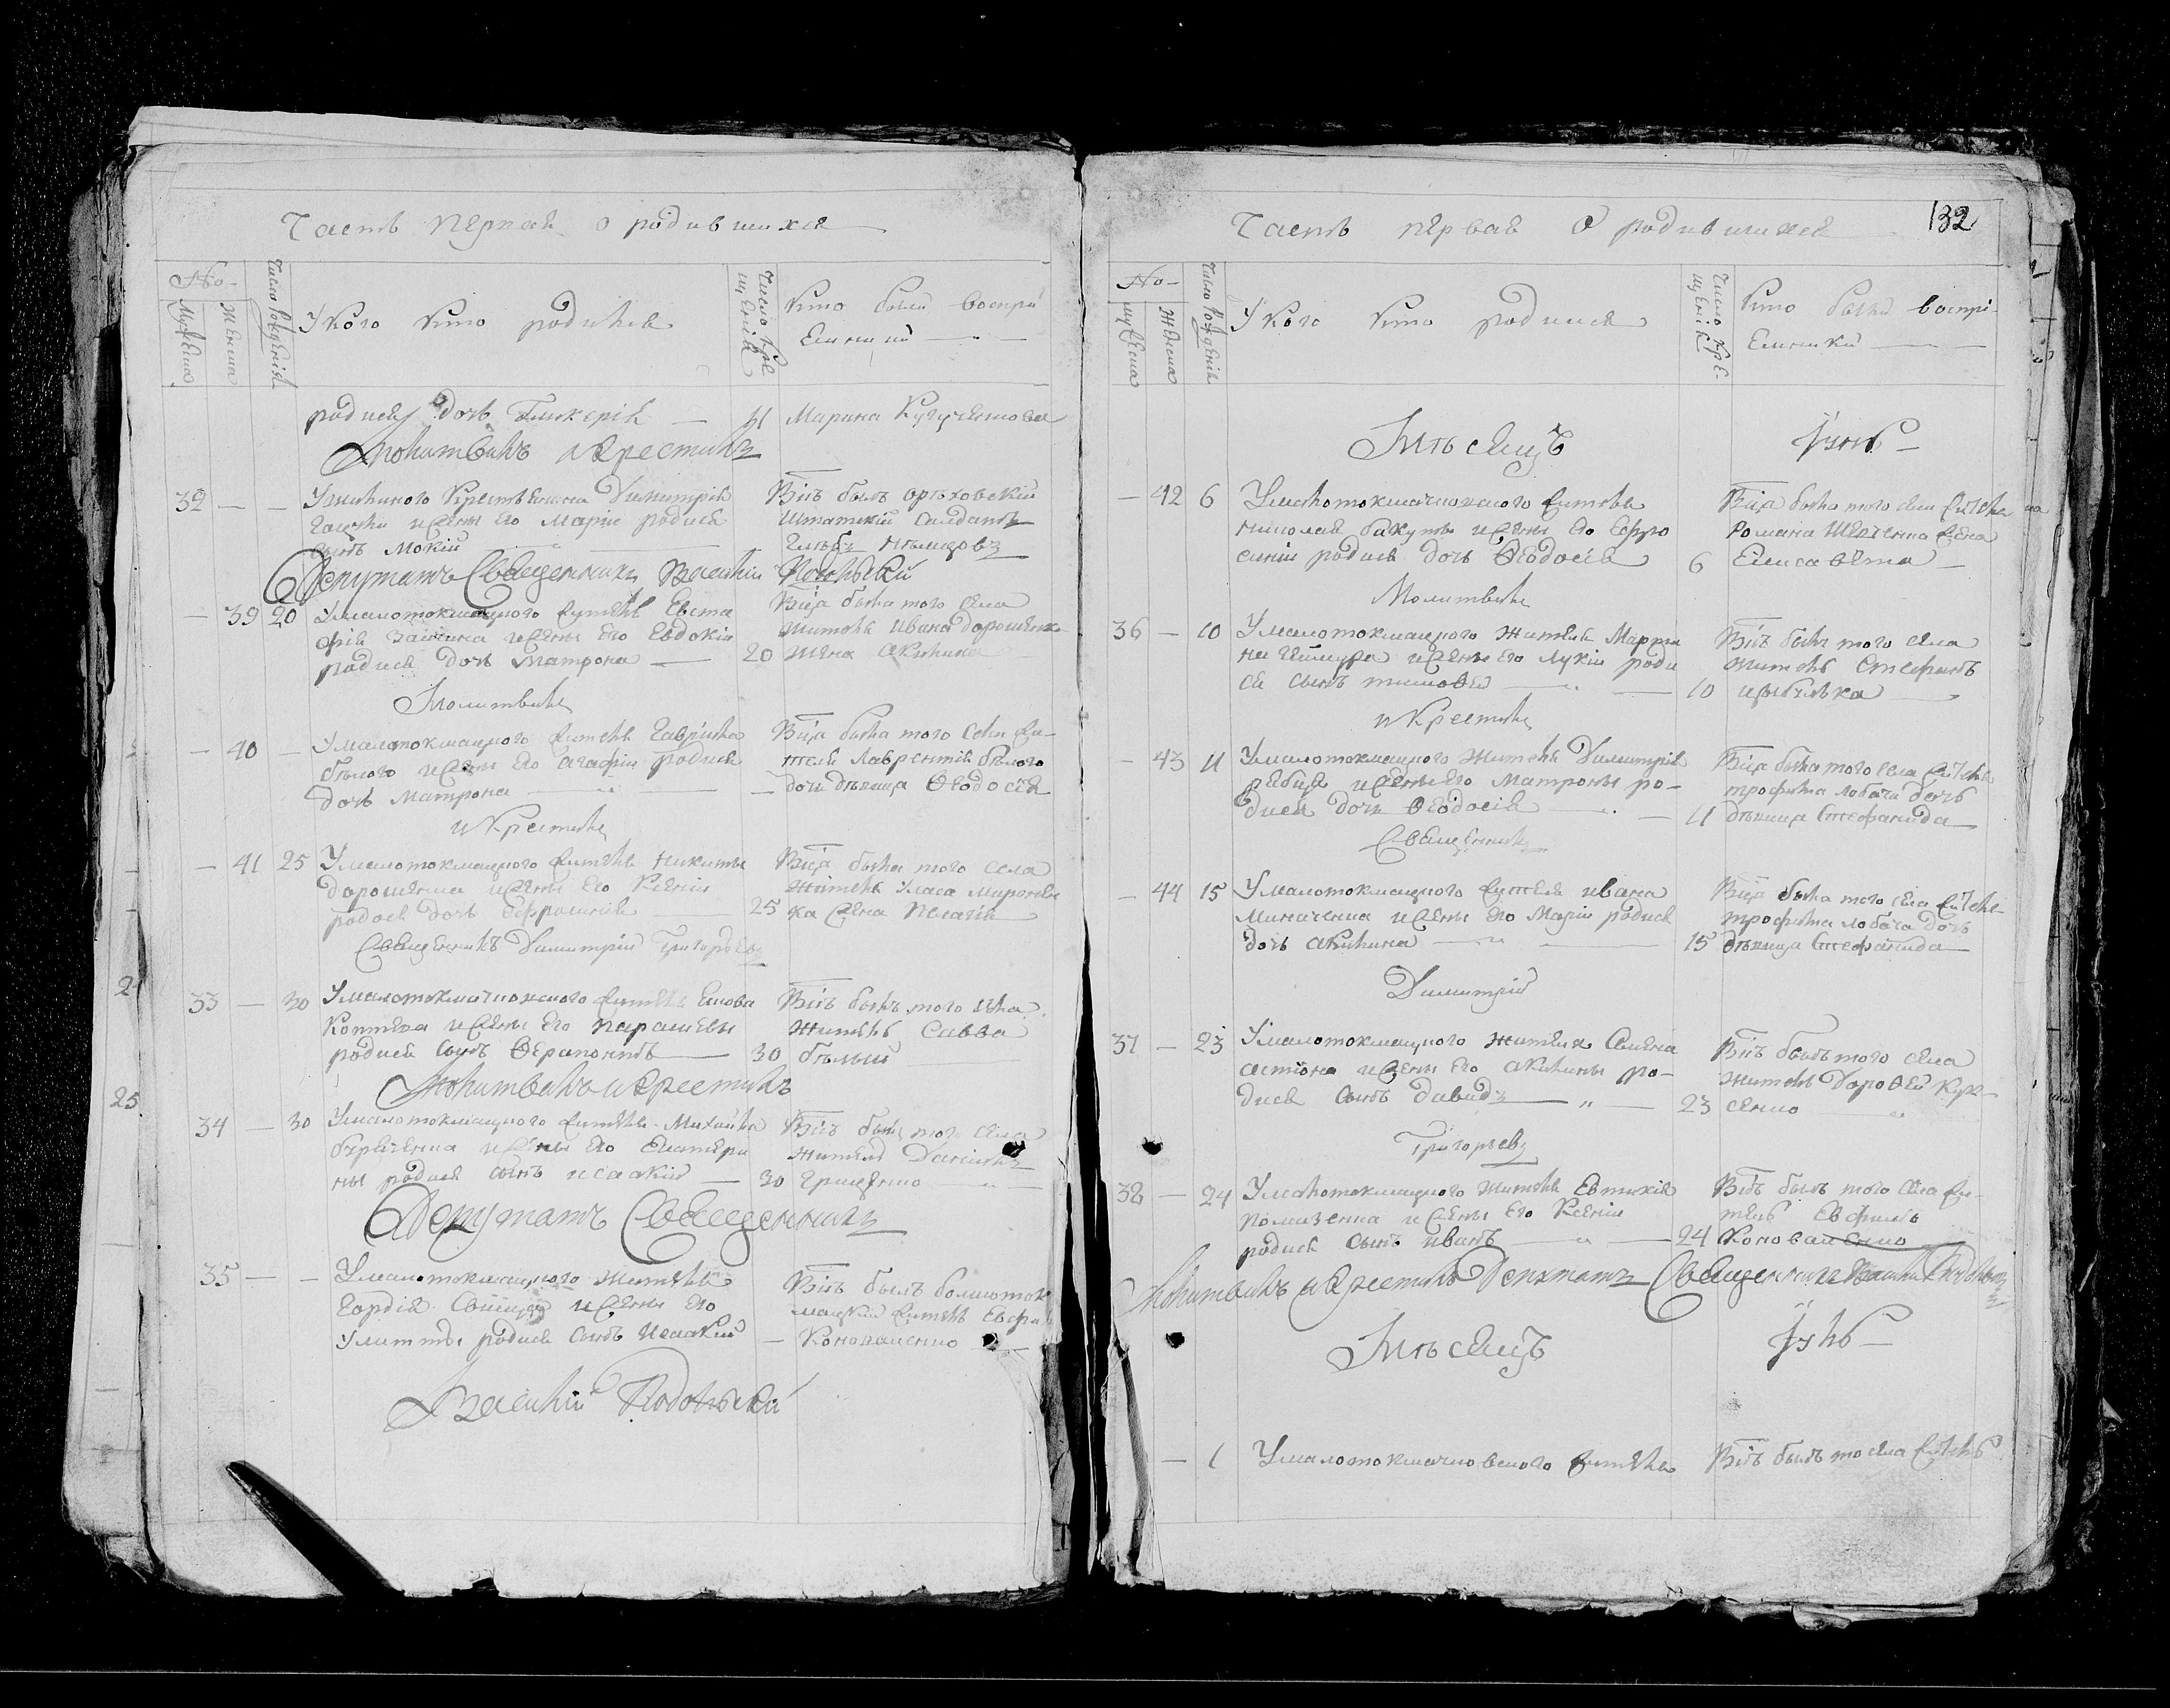 Часть первая о родившихся
No
Мужеска
Женска
Число рожденія
У кого кто родился
Число крещенія
Кто были воспри
емники
родися дочь Гликерія — 11 Марина
Молитвилъ и Крестилъ
32 — — Димитрія
и жены его Маріи родися
сынъ Мокій
Впъ былъ орѣховскій
штатскій салдатъ
Глѣбъ Нѣмцовъ
Депутатъ Священникъ Василій
— 39 20 У малотокмацкого жителя Евста
фія и жены его Евдокіи
родися дочь Матрона — 20
Вца была того села
жителя Ивана Дорошенка
жена Акилина
Молитвилъ
— 40 — У малотокмацкого жителя Гавріила
бѣлого и жены его Агафіи родися
дочь Матрона —
Вца была того села жи-
теля Лаврентія бѣлого
дочь дѣвица Ѳеодосія
и Крестилъ
— 41 25 У малотокмацкого жителя Никиты
Дорошенка и жены его Ксеніи
родися дочь Ефросинія — 25
Вца была того села
жителя Уласа Миронен
ка жена Пелагія
Священникъ Димитрій Григорьевъ
33 — 30 У малотокмачновского жителя
и жены его Парасковіи
родися сынъ Ѳерапонтъ — 30
Впъ былъ того села
житель Савва
бѣлый
Молитвилъ и Крестилъ
34 — 30 У малотокмацкого жителя Михаила
и жены его Екатери
ны родися сынъ Исаакій — 30
Впъ былъ того села
житель Даніилъ
Грищенко
Депутатъ Священникъ
35 — — У малотокмацкого жителя
Гордія и жены его
Улиты родися сынъ Исаакій —
Впъ былъ болшоток
мацкій житель Евфи
Коноваленко
Василій
Часть первая о родившихся 132
No
мужеска
Женска
Число рожденія
У кого кто родился
Число крещенія
Кто были воспрі-
емники
Мѣсяцъ Іунь
— 42 6 У малотокмачновского жителя
Николая бакуты и жены его Ефро
синіи родися дочь Ѳеодосія 6
Вца была того села жителя
Романа Шевченка жена
Елисавета
Молитвилъ
36 — 10 У малотокмацкого жителя Марти
на и жены его Лукіи роди
ся сынъ Тимоѳей — 10
Впъ былъ того села
житель Стефанъ
цыбулька
и Крестилъ
— 43 11 У малотокмацкого жителя Димитрія
рябця и жены его Матроны ро-
дися дочь Ѳеодосія — 11
Вца была того села жителя
трофима лобача дочь
дѣвица Стефанида
Священникъ
— 44 15 У малотокмацкого жителя Ивана
Миначенка и жены его Маріи родися
дочь Акилина — 15
Вца была того села жителя
трофима лобача дочь
дѣвица Стефанида
Димитрій
37 — 23 У малотокмацкого жителя Семена
и жены его Акилины ро-
дися сынъ Давидъ — 23
Впъ былъ того села
житель Дороѳей
Григорьевъ
38 — 24 У малотокмацкого жителя Евтихія
и жены его Ксеніи
родися сынъ Иванъ — 24
Впъ былъ того села жи-
тель Евфимъ
Коноваленко
Молитвилъ и Крестилъ Депутатъ Священникъ Василій
Мѣсяцъ Іуль
— 1 У малотокмачновского жителя
Впъ былъ то села житель